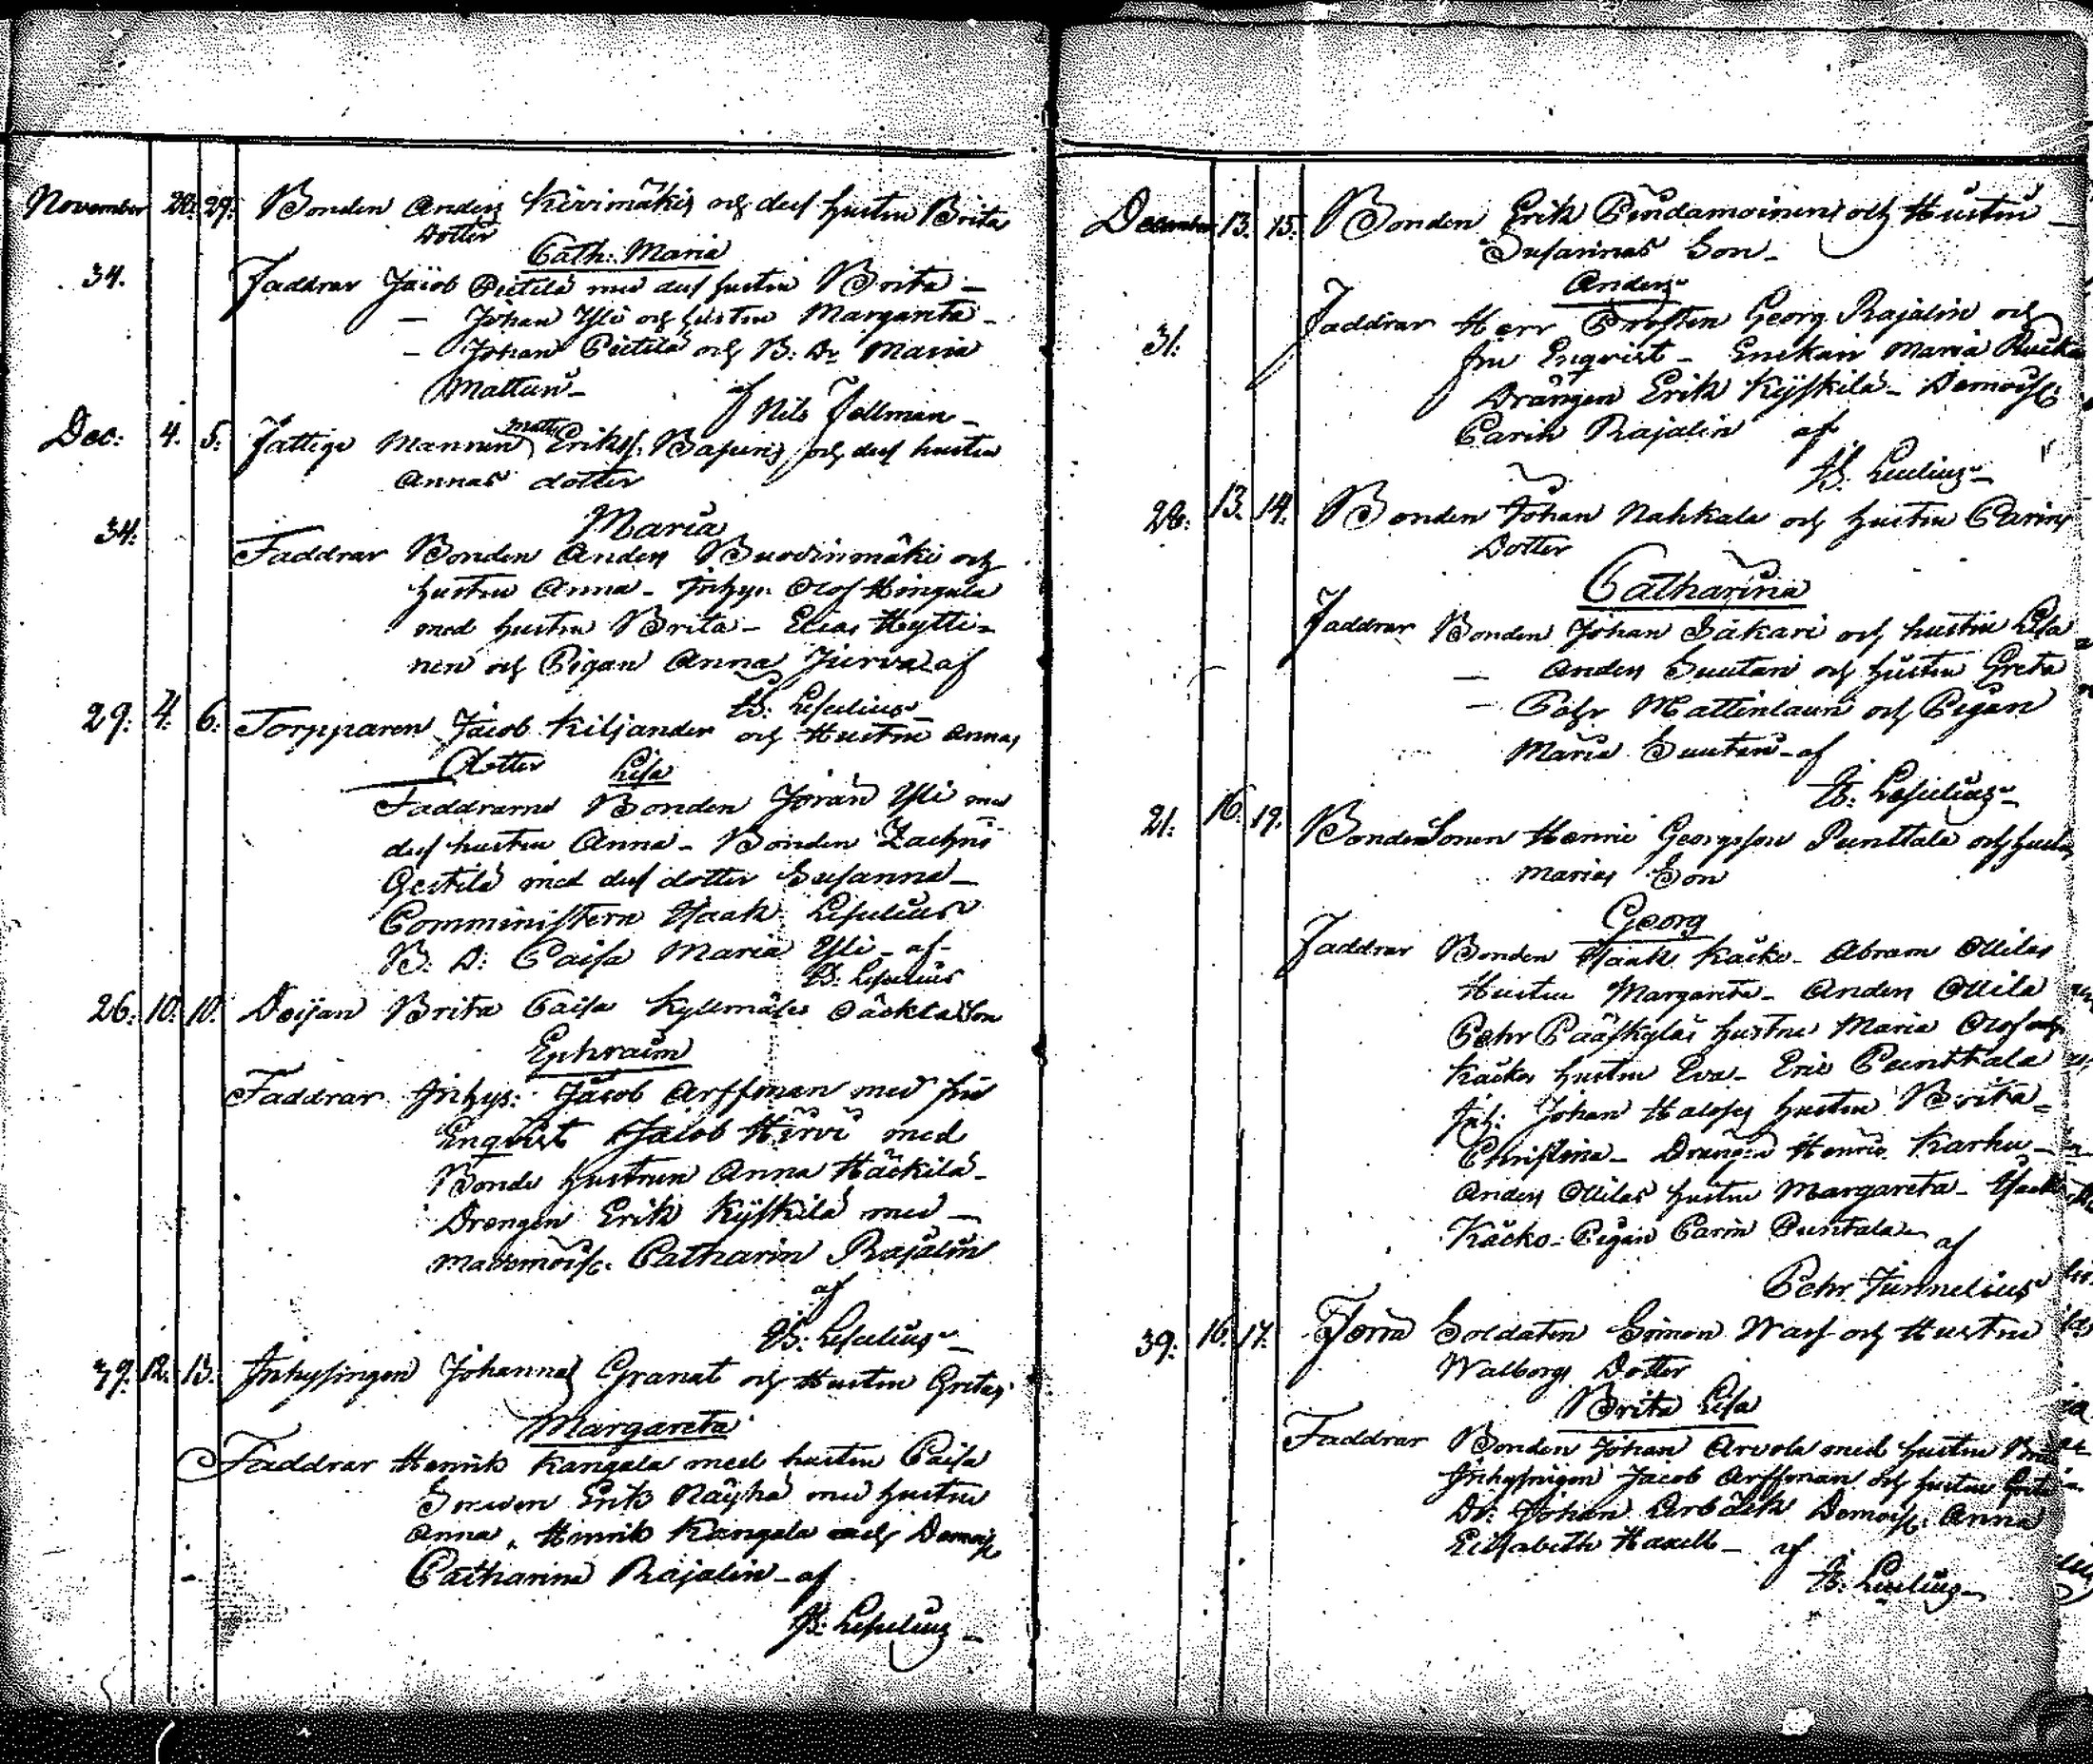 November 28. 29. Bonden Anders Kivimäkis och dess hustru Brita
Dotter
Cath: Maria
34. Faddrar Jacob Pietilä med dess hustru Brita –
– Johan Yli och hustru Margareta –
– Johan Pietilä och B: Dr Maria
Mattun – af Nils Fellman –
Dec: 4. 5. Fattige Mannen Matts Erikss. och dess hustru
Annas dotter
34: Maria
Faddrar Bonden Anders Buovinmäki och
hustru Anna – Inhys. Olof Hingala
med hustru Brita – Elias Hytti-
nen och Pigan Anna Jurva af
B: Lesulius –
29: 4. 6. Torpparen Jacob Kiljander och Hustru Annas
Dotter Lisa
Faddrarne Bonden Jöran Yli med
dess hustru Anna – Bonden Zachris
med dess dotter Susanna –
Comministern Isaak Lesulius
B: D: Caisa Maria Yli – af
B: Lesulius
26: 10. 10. Deijan Brita Caisa Kyllmäles oäckta Son
Ephraim
Faddrar Inhys: Jacob Arffman med fru
Enqvist Jacob Hirvi med
Bonde hustrun Anna Häckilä –
Drengen Erik Kyskilä med –
Mademoise. Catharin Rajalin
af
B: Lesulius –
39: 12. 13. Inhysingen Johannes Granat och Hustru Gretas
Margareta
Faddrar Henrik Kangala med hustru Caisa
Erik Näyhä med hustru
Anna, Hinrik Kangala och Demoise
Catharina Rajalin – af
B: Lesulius –
December 13. 15. Bonden Erik Pindamoinens och Hustru –
Susannas Son –
Anders
31: Faddrar Herr Prosten Georg Rajalin och
fru Enqvist – Enckan Maria
Drängen Erik Kyskilä – Demoise.
Carin Rajalin af
B: Lesulius –
28: 13. 14. Bonden Johan Nahkala och hustru Carins
Dotter
Catharina
Faddrar Bonden Johan Säkari och hustru Lisa
– Anders Suutari och hustru Greta
– Pehr Mattinlauri och Pigan
Maria Suutari – af
B: Lesulius –
21: 16. 19. BondeSonen Henric Georgsson Punttala och hustru
Marias Son
Georg
Faddrar Bonden Isaak Käcko – Abram Ollilas
Hustru Margareta – Anders Ollila
Pehr Pääskyläs hustru Maria Olof
Käckos hustru Eva – Eric Punttala
Inh: Johan Halosis hustru Brita –
Christina – Drängen Henric Karhu –
Anders Ollilas hustru Margareta – Isack
Käcko – Pigan Carin Puntala – af
Pehr Junnelius
39: 16. 17. Förra Soldaten Simon Wass och Hustru
Walborgs Dotter
Brita Lisa
Faddrar Bonden Johan Arvola med hustru Brita
Inhysingen Jacob Arffman och hustru Greta
Dr: Johan Demoise. Anna
Elisabeth Haxell – af
B: Lesulius –